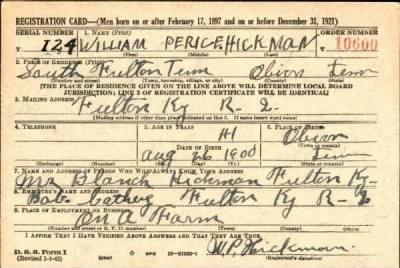 REGISTRATION CARD—(Men born on or after February 17, 1897 and on or before December 31, 1921)
SERIAL NUMBER 1. NAME (Print) ORDER NUMBER
124 WILLIAM PERICE HICKMAN 10600
(First) (Middle) (Last)
2. PLACE OF RESIDENCE (Print)
South Fulton Tenn Obion Tenn
(Number and street) (Town, township, village, or city) (County) (State)
[THE PLACE OF RESIDENCE GIVEN ON THE LINE ABOVE WILL DETERMINE LOCAL BOARD
JURISDICTION; LINE 2 OF REGISTRATION CERTIFICATE WILL BE IDENTICAL]
3. MAILING ADDRESS
Fulton Ky R-2
[Mailing address if other than place indicated on line 2. If same insert word same]
4. TELEPHONE 5. AGE IN YEARS 6. PLACE OF BIRTH
41 Obion
DATE OF BIRTH (Town or county)
Aug 26 1900 Tenn
(Exchange) (Number) (Mo.) (Day) (Yr.) (State or country)
7. NAME AND ADDRESS OF PERSON WHO WILL ALWAYS KNOW YOUR ADDRESS
Mrs Blanch Hickman Fulton Ky
8. EMPLOYER'S NAME AND ADDRESS
Bob Fulton Ky R-2
9. PLACE OF EMPLOYMENT OR BUSINESS
On A Farm
(Number and street or R. F. D. number) (Town) (County) (State)
I AFFIRM THAT I HAVE VERIFIED ABOVE ANSWERS AND THAT THEY ARE TRUE.
W.P. Hickman
D. S. S. Form 1
(Revised 1-1-42) (over) (Registrant's signature)